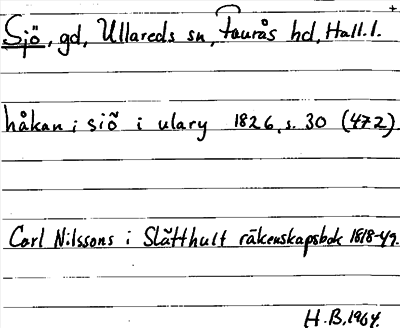 Sjö, gd, Ullareds sn, Faurås hd, Hall. l.
håkan i siö i ulary 1826, s. 30 (472)
Carl Nilssons i Slätthult räkenskapsbok 1818-49.
H.B. 1964.